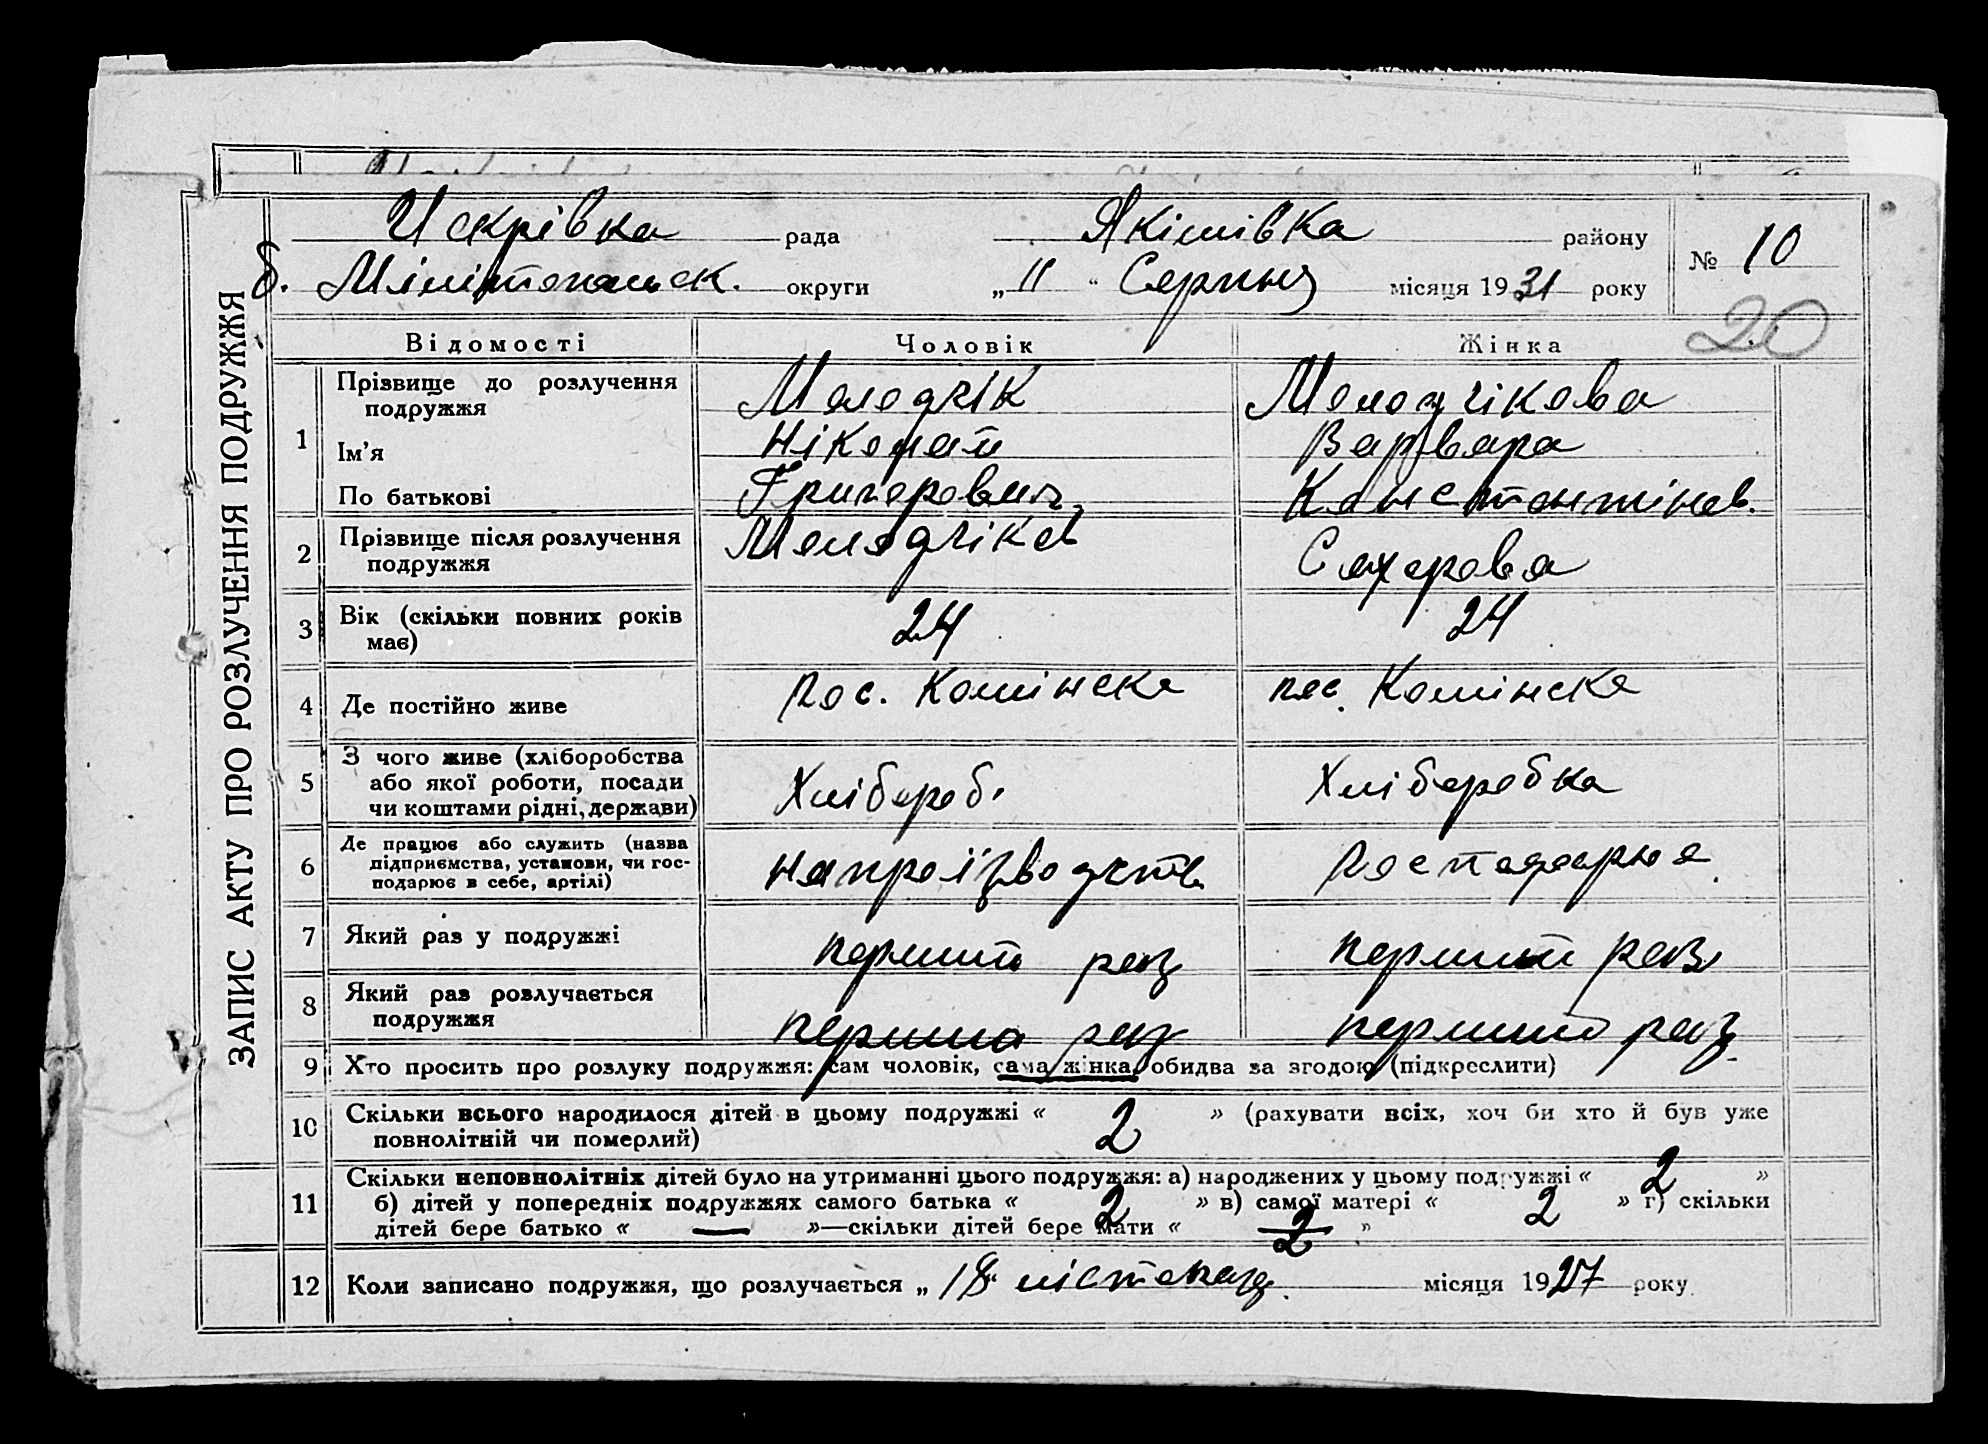 ЗАПИС АКТУ ПРО РОЗЛУЧЕННЯ ПОДРУЖЖЯ
Искрівка рада Якімівка району № 10
б. Мілітопольск. округи „ 11 " Серпня місяця 1931 року
20
Відомості Чоловік Жінка
1 Прізвище до розлучення подружжя Молодчік Молодчікова
Ім'я Ніколай Варвара
По батькові Григорович Константінов.
2 Прізвище після розлучення подружжя Молодчіков Сахарова
3 Вік (скільки повних років має) 24 24
4 Де постійно живе пос. Комінска пос. Комінска
5 З чого живе (хліборобства або якої роботи, посади чи коштами рідні, держави) Хлібороб. Хліборобка
6 Де працює або служить (назва підприємства, установи, чи господарює в себе, артілі)
7 Який раз у подружжі перший раз перший раз
8 Який раз розлучається подружжя перша раз перший раз
9 Хто просить про розлуку подружжя: сам чоловік, сама жінка, обидва за згодою (підкреслити)
10 Скільки всього народилося дітей в цьому подружжі « 2 » (рахувати всіх, хоч би хто й був уже
повнолітній чи померлий)
11 Скільки неповнолітніх дітей було на утриманні цього подружжя: а) народжених у цьому подружжі « 2 »
б) дітей у попередніх подружжях самого батька « 2 » в) самої матері « 2 » г) скільки
дітей бере батько « — »—скільки дітей бере мати « 2 »
12 Коли записано подружжя, що розлучається „ 18 " лістопад. місяця 1927 року